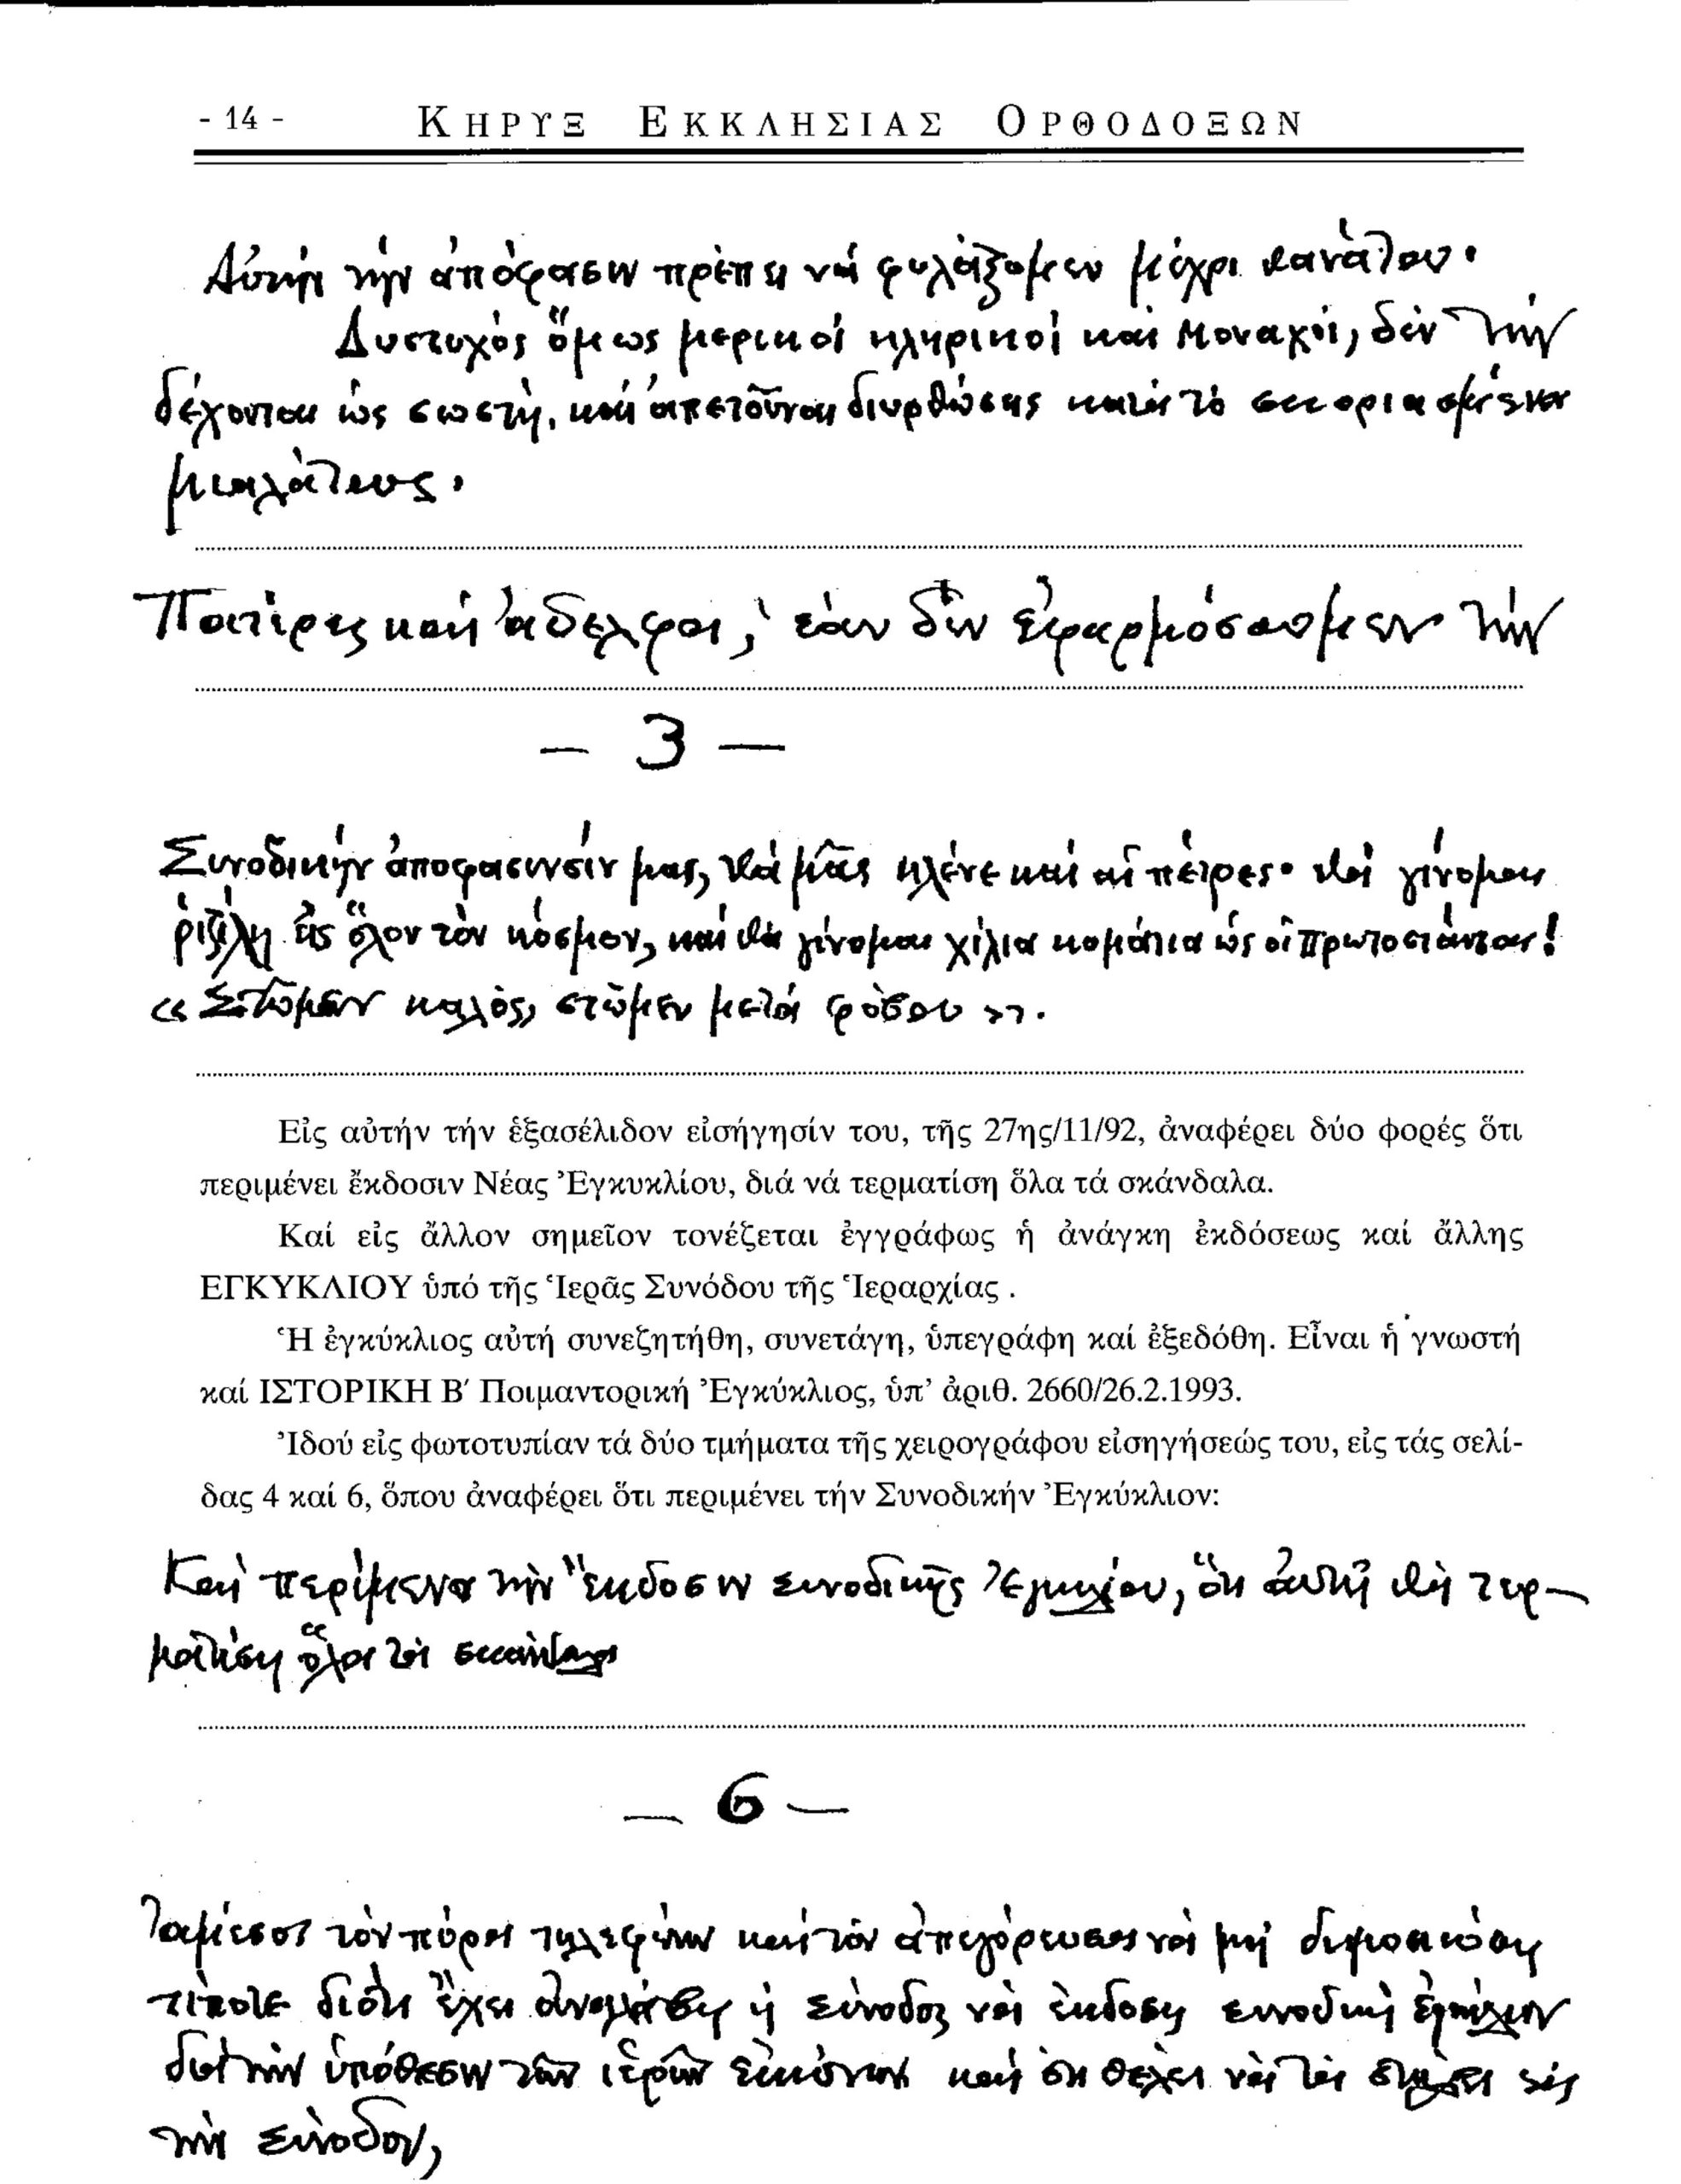 - 14 - ΚΗΡΥΞ ΕΚΚΛΗΣΙΑΣ ΟΡΘΟΔΟΞΩΝ
Αὐτήν τήν ἀπόφασιν πρέπει νά φυλάξομεν μέχρι θανάτου.
Δυστυχός ὅμως μερικοί κληρικοί καί Μοναχοί, δέν τήν
δέχονται ὡς σωστή, καί ἀπετοῦνται διορθώσης κατά τό
μιαλάτους.
Πατέρες καί ἀδελφοι, ἐάν δέν ἐφαρμόσουμεν τήν
- 3 -
Συνοδικήν ἀποφασινσίν μας, θά μᾶς κλένε καί αἱ πέτρες. θά γίνομαι
ριζίλη εἰς ὅλον τόν κόσμον, καί θά γίνομαι χίλια κομάτια ὡς οἱ Πρωτοστάνται!
« Στῶμεν καλός, στῶμεν μετά φόβου ».
Εἰς αὐτήν τήν ἑξασέλιδον εἰσήγησίν του, τῆς 27ης/11/92, ἀναφέρει δύο φορές ὅτι
περιμένει ἔκδοσιν Νέας Ἐγκυκλίου, διά νά τερματίση ὅλα τά σκάνδαλα.
Καί εἰς ἄλλον σημεῖον τονέζεται ἐγγράφως ἡ ἀνάγκη ἐκδόσεως καί ἄλλης
ΕΓΚΥΚΛΙΟΥ ὑπό τῆς Ἱερᾶς Συνόδου τῆς Ἱεραρχίας .
Ἡ ἐγκύκλιος αὐτή συνεζητήθη, συνετάγη, ὑπεγράφη καί ἐξεδόθη. Εἶναι ἡ γνωστή
καί ΙΣΤΟΡΙΚΗ Β΄ Ποιμαντορική Ἐγκύκλιος, ὑπ’ ἀριθ. 2660/26.2.1993.
Ἰδού εἰς φωτοτυπίαν τά δύο τμήματα τῆς χειρογράφου εἰσηγήσεώς του, εἰς τάς σελί-
δας 4 καί 6, ὅπου ἀναφέρει ὅτι περιμένει τήν Συνοδικήν Ἐγκύκλιον:
Καί περίμενα τήν ἔκδοσιν συνοδικῆς Ἐγκυκλίου, ὅτι αὐτή θά τερ-
ματίση ὅλα τά σκάνδαλα
- 6 -
τόν πύρα τηλεφωνον καί τόν ἀπεγόρευσα νά μή δημοσιώση
τίποτε διότι ἔχει ἀναλάβη ἡ σύνοδος νά ἐκδοση συνοδική ἐγκύκλιον
διά τήν ὑπόθεσιν τῶν ἱερῶν εἰκόνων καί ὅτι θέλει νά τά στήλει εἰς
τήν σύνοδον,